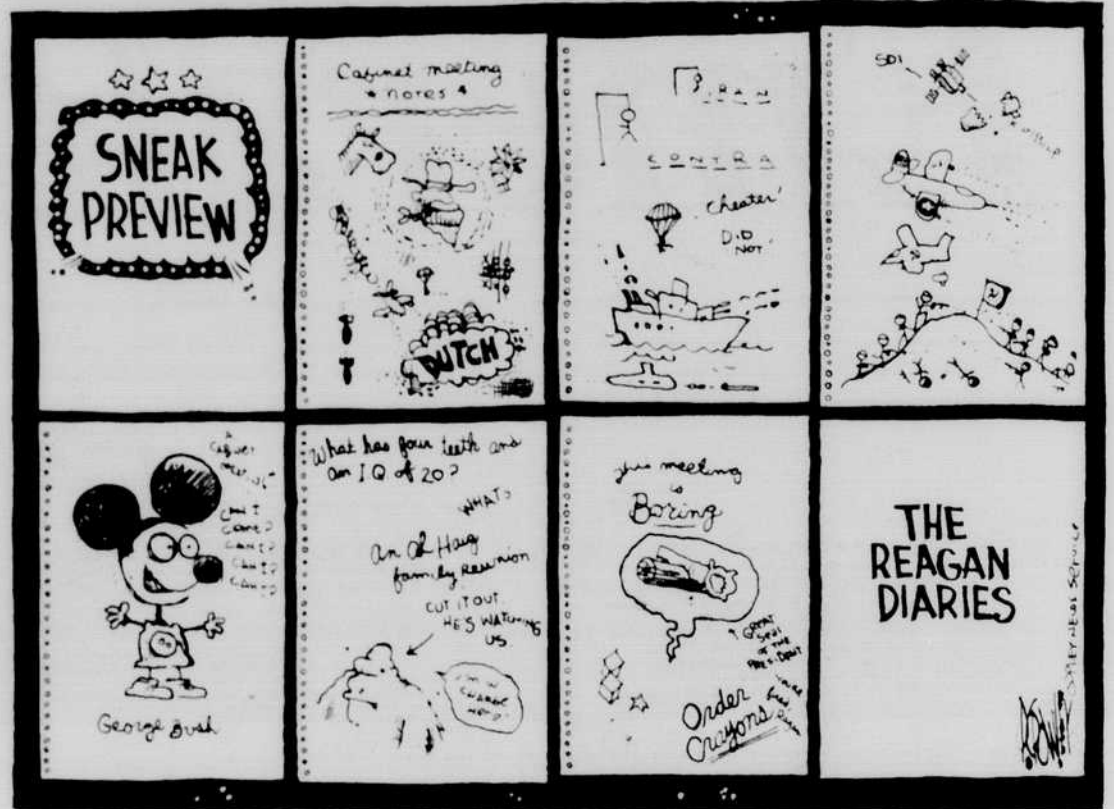 SNEAK
PREVIEW
Cabinet meeting
notes
DUTCH
IRAN
CONTRA
Cheater!
DID
NOT.
SDI
CAN I?
CAN I?
CAN I?
CAN I?
George Bush
What has four teeth and
an IQ of 20?
WHAT?
An Al Haig
family Reunion
CUT IT OUT.
HE'S WATCHING
US
I'M IN
CHARGE
HERE!
This meeting
is
Boring
GREAT
SEAL
OF THE
PRESIDENT
Order
Crayons
THE
REAGAN
DIARIES
COPLEY NEWS SERVICE